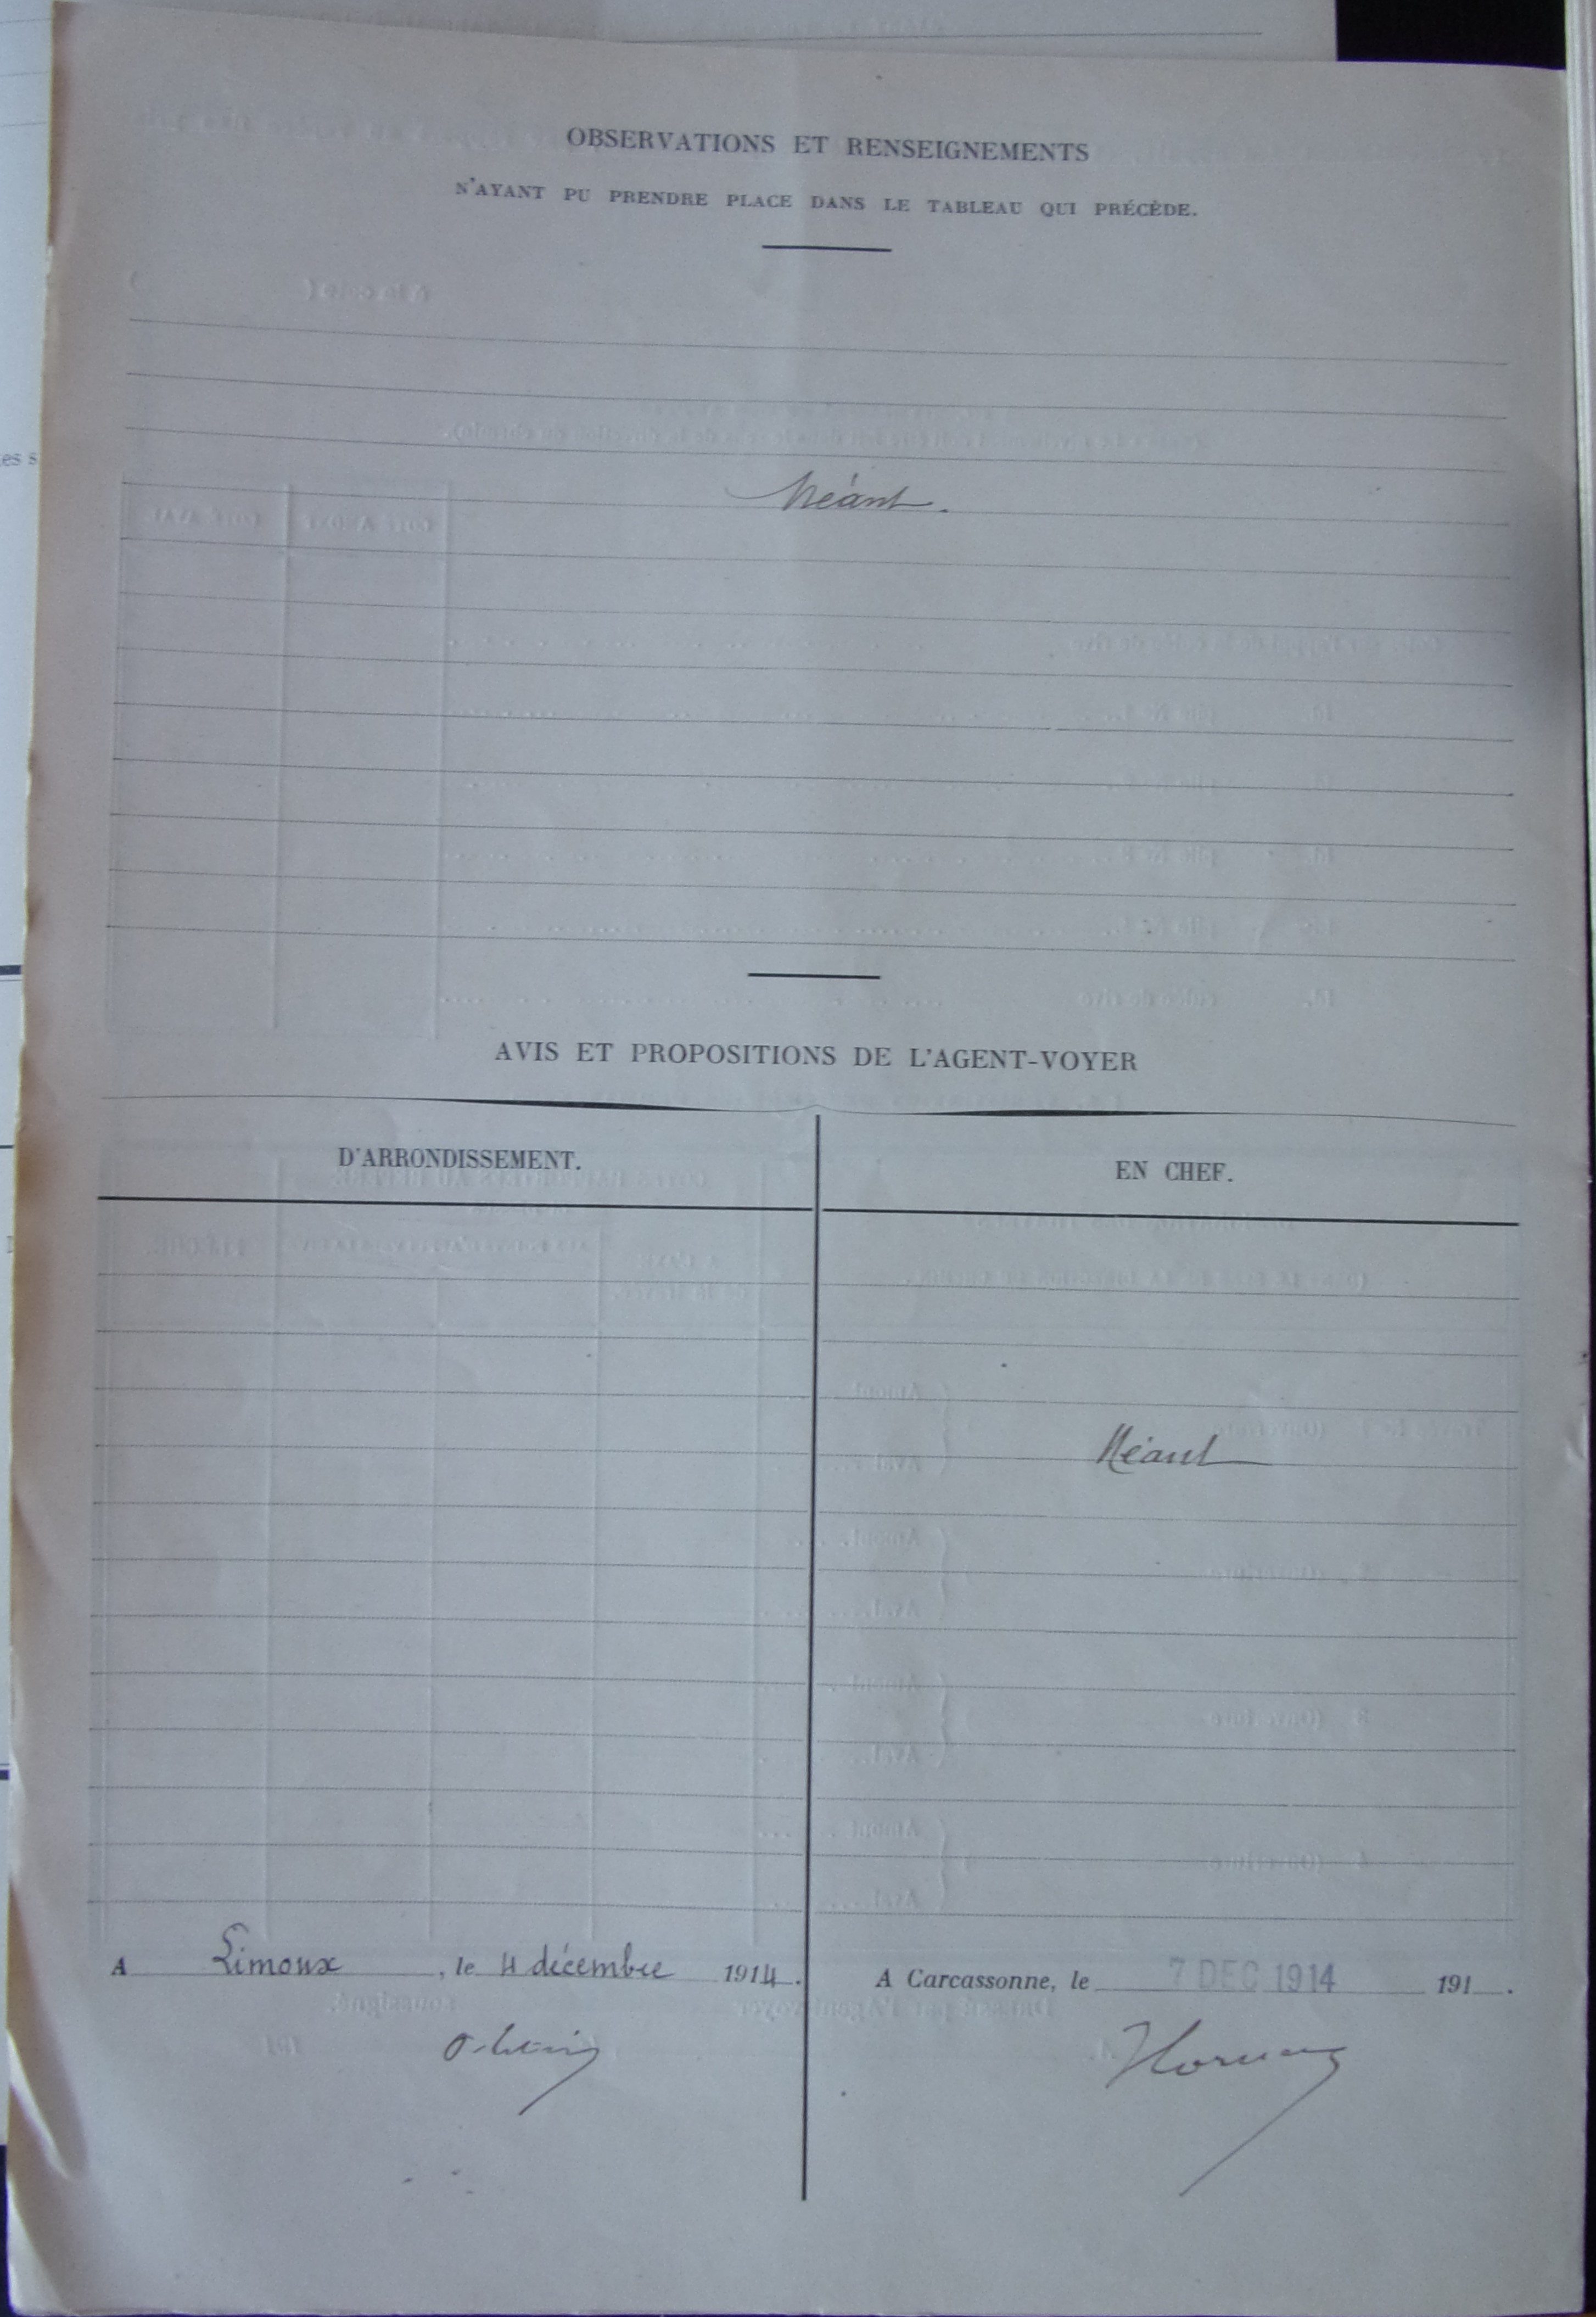 OBSERVATIONS ET RENSEIGNEMENTS
N'AYANT PU PRENDRE PLACE DANS LE TABLEAU QUI PRÉCÈDE.
Néant.
AVIS ET PROPOSITIONS DE L'AGENT-VOYER
D'ARRONDISSEMENT.
A Limoux, le 4 décembre 1914.
EN CHEF.
Néant
A Carcassonne, le 7 DEC 1914 191 .